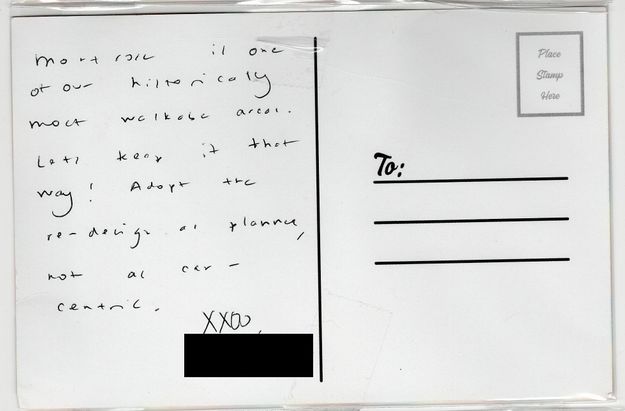 Montrose is one
of our historically
most walkable areas.
Lets keep it that
way! Adopt the
re-design as planned,
not as car-
centric.
XXOO,
Place
Stamp
Here
To: